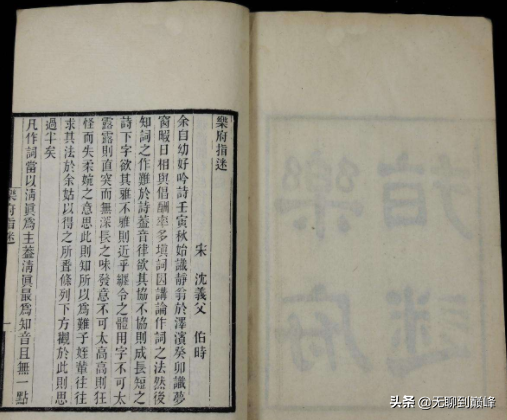 樂府指迷
宋 沈義父 伯時
余自幼好吟詩壬寅秋始識靜翁於澤濱癸卯識夢
窗暇日相與倡酬率多填詞因講論作詞之法然後
知詞之作難於詩蓋音律欲其協不協則成長短之
詩下字欲其雅不雅則近乎纏令之體用字不可太
露露則直突而無深長之味發意不可太高高則狂
怪而失柔婉之意思此則知所以爲難子姪輩往往
求其法於余姑以得之所聞條列下方觀於此則思
過半矣
凡作詞當以淸眞爲主蓋淸眞最爲知音且無一點
樂府指迷 一
樂府指迷
头条 @无聊到巅峰